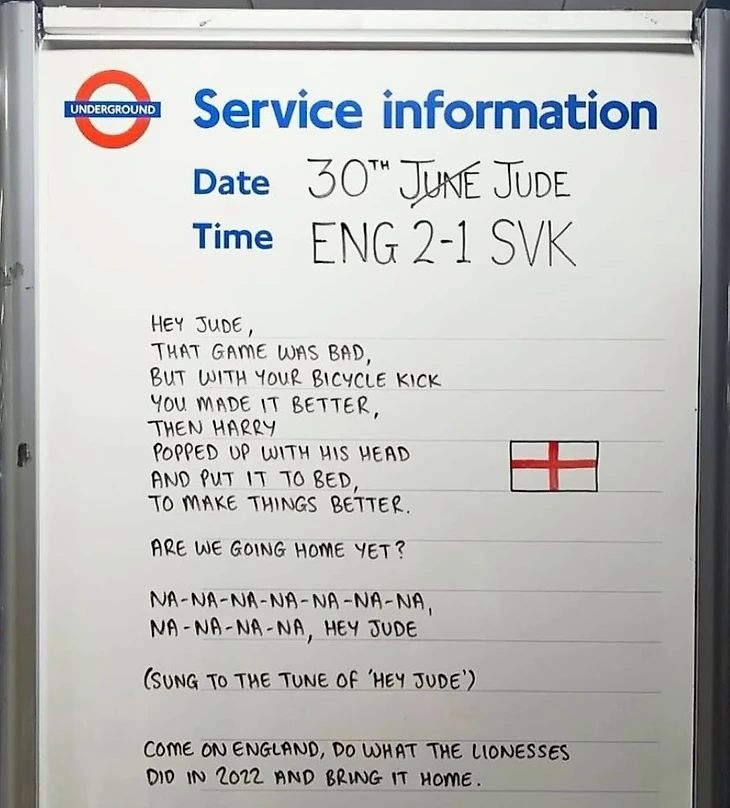 UNDERGROUND
Service information
Date 30TH JUNE JUDE
Time ENG 2-1 SVK
HEY JUDE,
THAT GAME WAS BAD,
BUT WITH YOUR BICYCLE KICK
YOU MADE IT BETTER,
THEN HARRY
POPPED UP WITH HIS HEAD
AND PUT IT TO BED,
TO MAKE THINGS BETTER.
ARE WE GOING HOME YET?
NA-NA-NA-NA-NA-NA-NA,
NA-NA-NA-NA, HEY JUDE
(SUNG TO THE TUNE OF 'HEY JUDE')
COME ON ENGLAND, DO WHAT THE LIONESSES
DID IN 2022 AND BRING IT HOME.